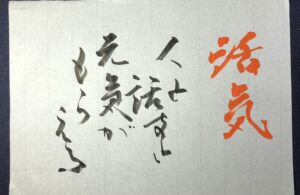 活気
人と
話すと
元気が
もらえる